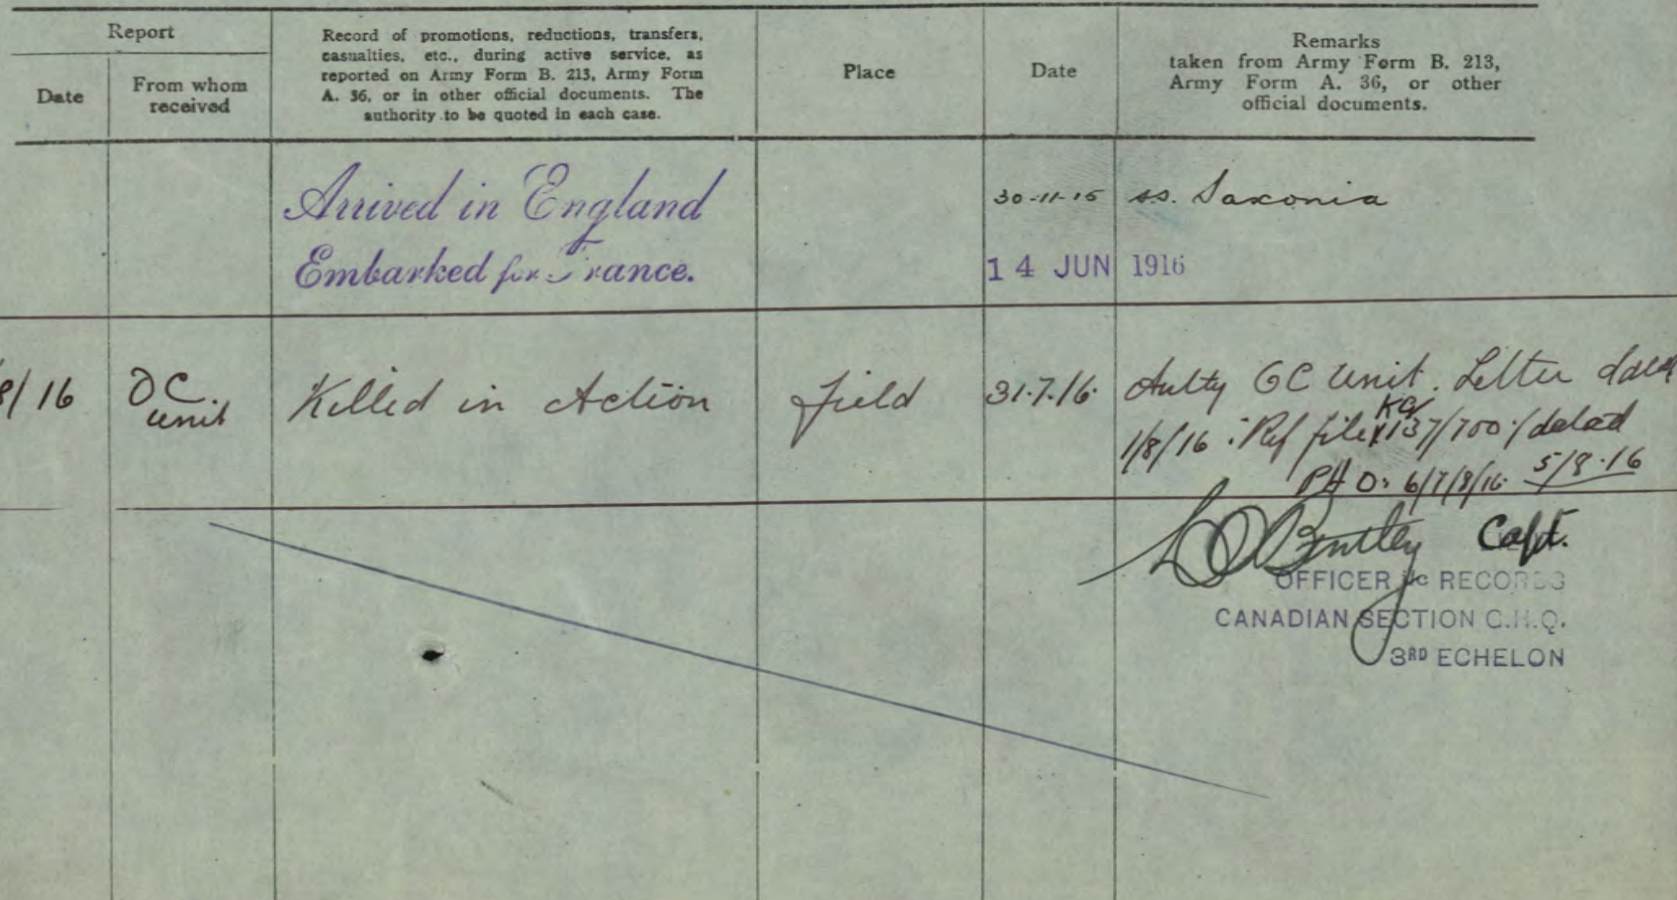 Report
Date
From whom
received
Record of promotions, reductions, transfers,
casualties, etc., during active service, as
reported on Army Form B. 213, Army Form
A. 36, or in other official documents. The
authority to be quoted in each case.
Place
Date
Remarks
taken from Army Form B. 213,
Army Form A. 36, or other
official documents.
Arrived in England
30-11-15
ss. Saxonia
Embarked for France.
14 JUN 1916
8/16
OC
unit
Killed in Action
field
31.7.16.
Authy OC Unit. Letter dated
1/8/16 : Ref file 137/700 / dated
5/8.16
Bentley Capt.
OFFICER i/c RECORDS
CANADIAN SECTION G.H.Q.
3RD ECHELON